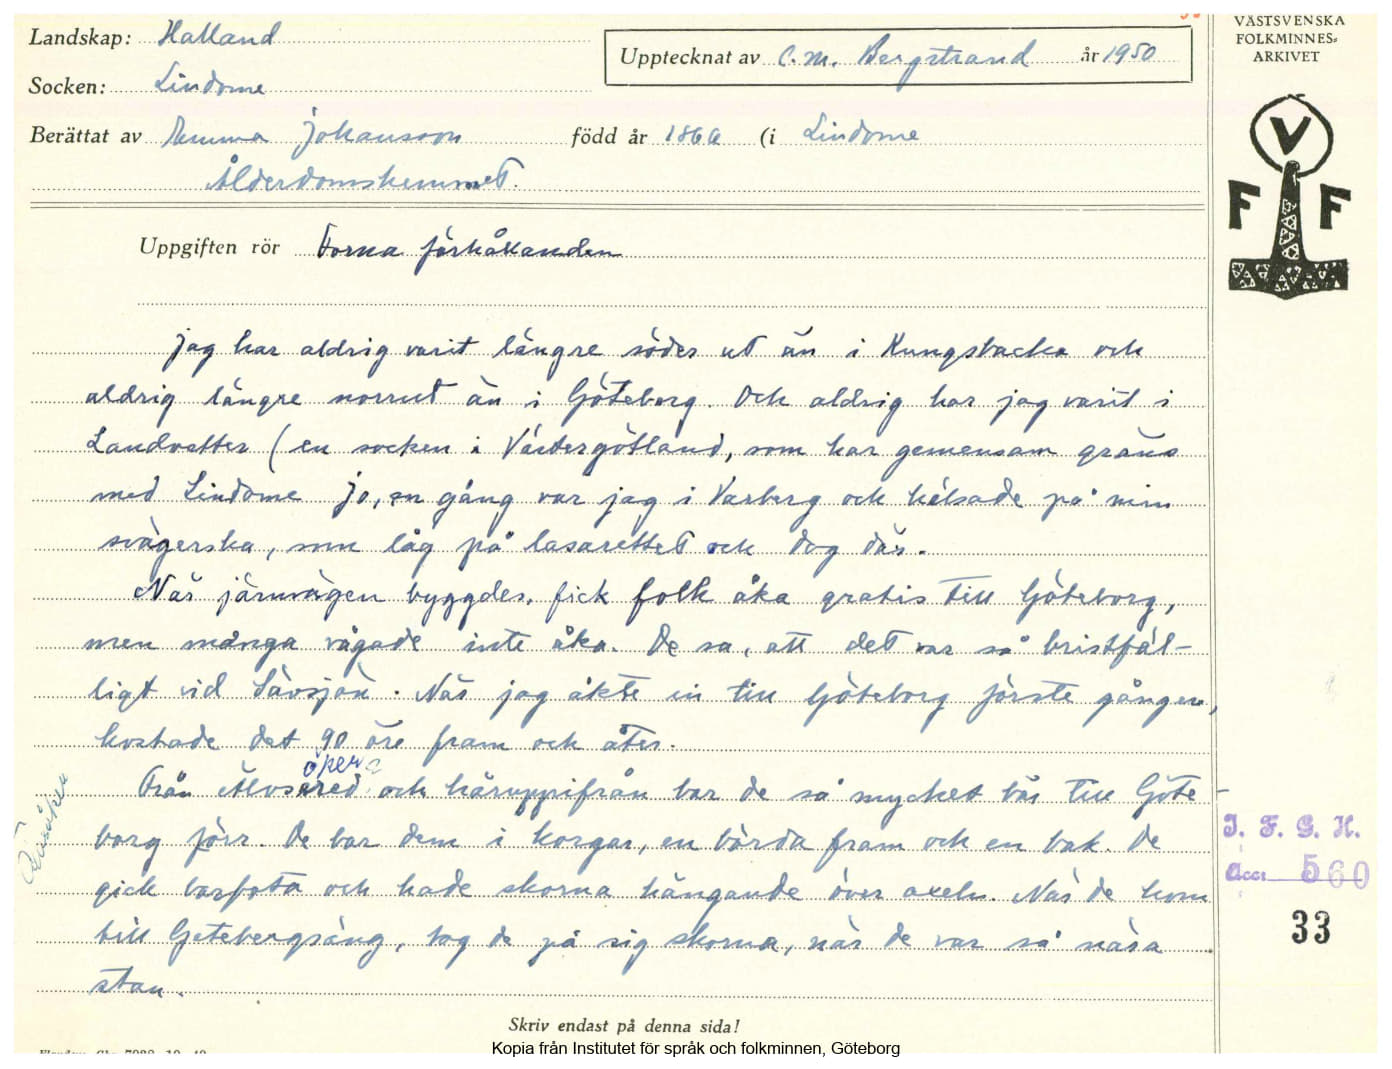 VÄSTSVENSKA
FOLKMINNES-
ARKIVET
V
F F
Landskap: Halland
Upptecknat av C. M. Bergstrand år 1950
Socken: Lindome
Berättat av Emma Johansson född år 186 (i Lindome
Ålderdomshemmet.
Uppgiften rör Forna förhållanden
Jag har aldrig varit längre söder ut än i Kungsbacka och
aldrig längre norrut än i Göteborg. Och aldrig har jag varit i
Landvetter (en socken i Västergötland, som har gemensam gräns
med Lindome Jo, en gång var jag i Varberg och hälsade på min
svägerska, som låg på lasarettet och dog där.
När järnvägen byggdes, fick folk åka gratis till Göteborg,
men många vågade inte åka. De sa, att det var så bristfäl-
ligt vid Sävsjön. När jag åkte in till Göteborg förste gången,
kostade det 90 öre fram och åter.
Från Älvsered och häruppifrån bar de så mycket bär till Göte-
borg förr. De bar dem i korgar, en börda fram och en bak. De
gick barfota och hade skorna hängande över axeln. När de kom
till Getebergsäng, tog de på sig skorna, när de var så nära
stan.
I. F. G. H.
Acc: 560
33
Skriv endast på denna sida!
Kopia från Institutet för språk och folkminnen, Göteborg